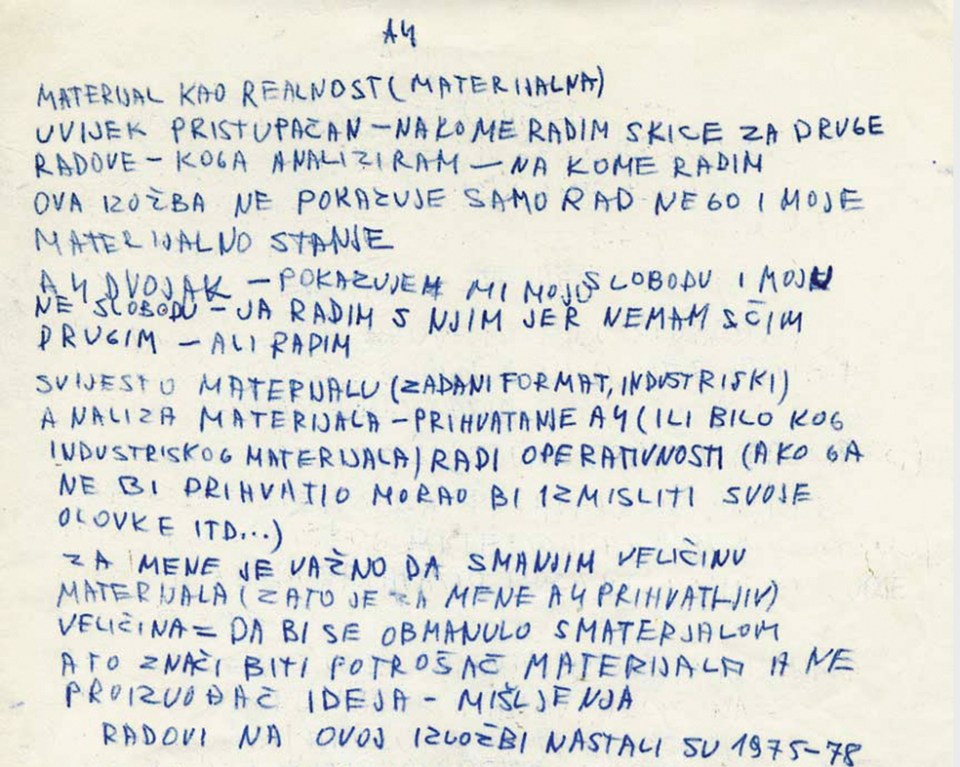 A4
MATERIJAL KAO REALNOST (MATERIJALNA)
UVIJEK PRISTUPAČAN – NA KOME RADIM SKICE ZA DRUGE
RADOVE – KOGA ANALIZIRAM – NA KOME RADIM
OVA IZOŽBA NE POKAZUJE SAMO RAD NEGO I MOJE
MATERIJALNO STANJE
A4 DVOJAK – POKAZUJEM MI MOJU SLOBODU I MOJU
NE SLOBODU – JA RADIM S NJIM JER NEMAM S ČIM
DRUGIM – ALI RADIM
SVIJEST O MATERIJALU (ZADANI FORMAT, INDUSTRISKI)
ANALIZA MATERIJALA – PRIHVATANJE A4 (ILI BILO KOG
INDUSTRISKOG MATERIJALA) RADI OPERATIVNOSTI (AKO GA
NE BI PRIHVATIO MORAO BI IZMISLITI SVOJE
OLOVKE ITD...)
ZA MENE JE VAŽNO DA SMANJIM VELIČINU
MATERIJALA (ZATO JE ZA MENE A4 PRIHVATLJIV)
VELIČINA = DA BI SE OBMANULO S MATERJALOM
A TO ZNAČI BITI POTROŠAČ MATERIJALA A NE
PROIZVOĐAČ IDEJA – MIŠLJENJA
RADOVI NA OVOJ IZLOŽBI NASTALI SU 1975–78